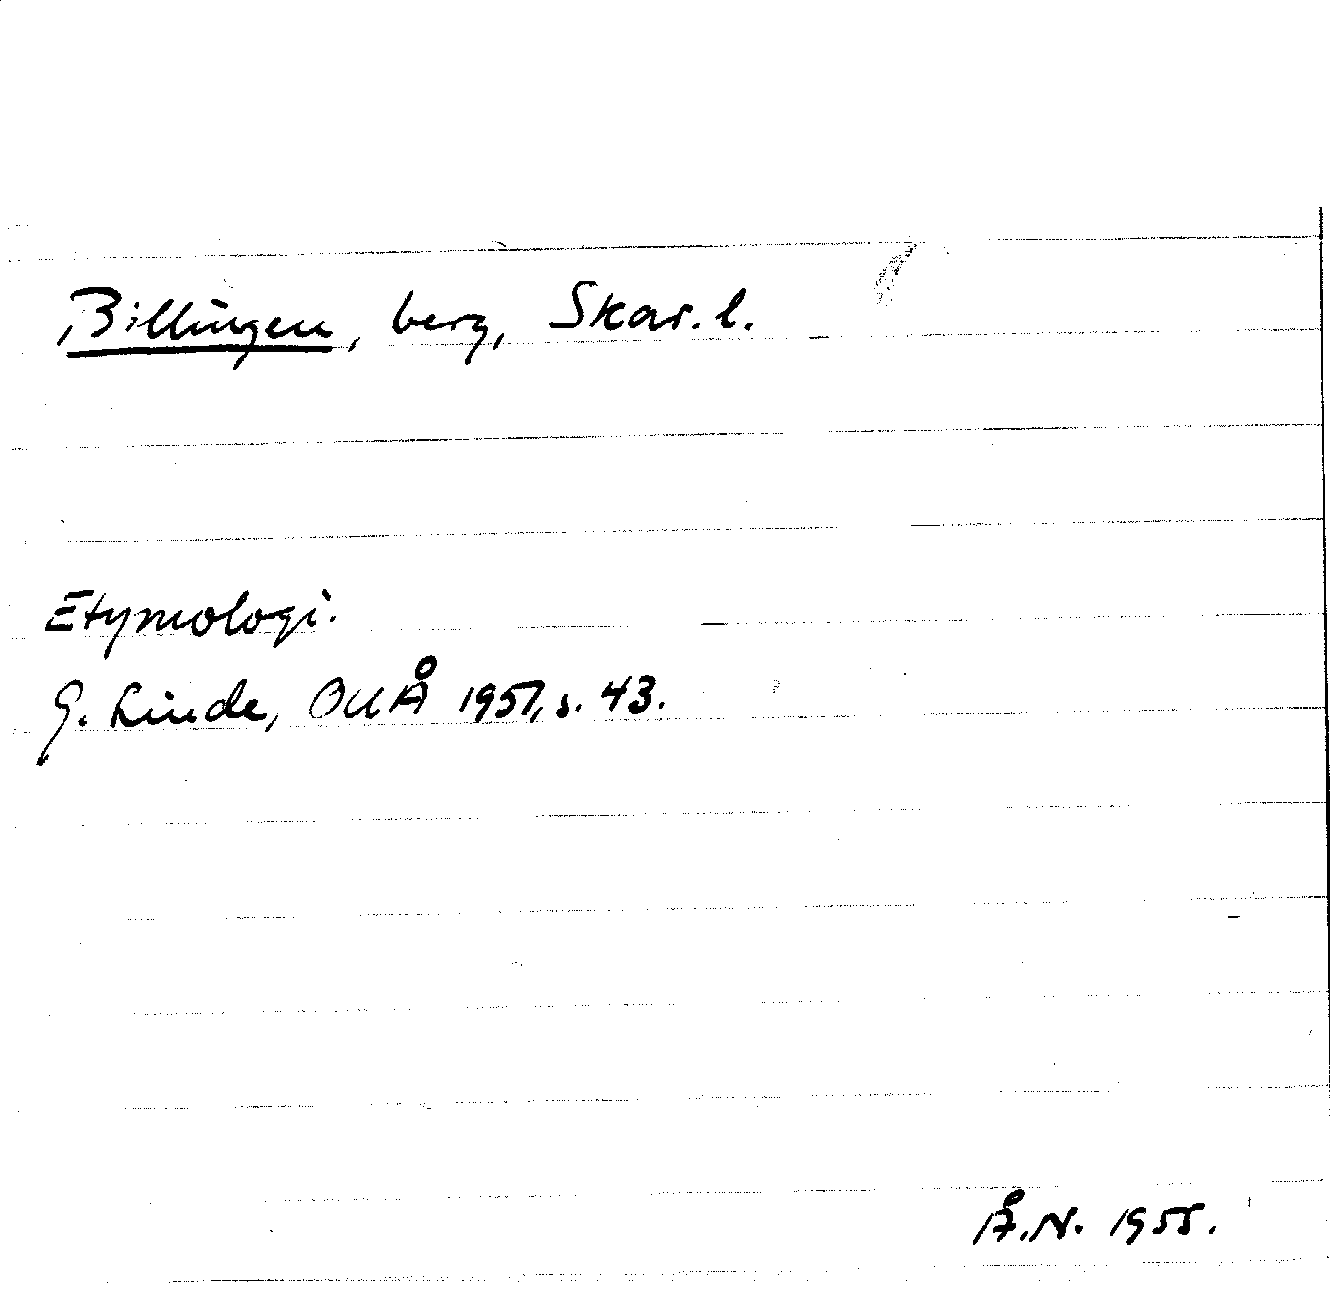 Billingen, berg, Skar. l.
Etymologi.
G. Linde, OUÅ 1951, s. 43.
Å.N. 1955.